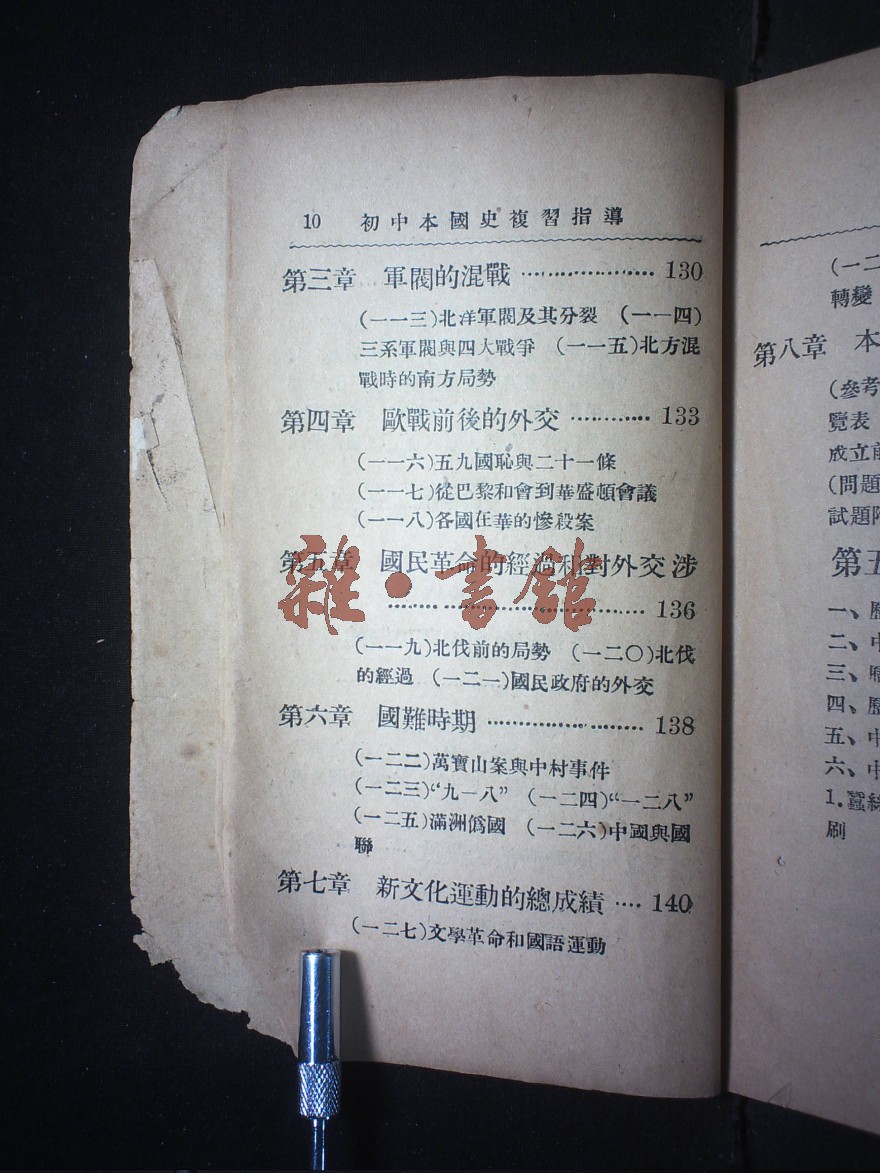 10 初中本國史複習指導
第三章 軍閥的混戰 …………………… 130
(一一三)北洋軍閥及其分裂 (一一四)
三系軍閥與四大戰爭 (一一五)北方混
戰時的南方局勢
第四章 歐戰前後的外交 ………… 133
(一一六)五九國恥與二十一條
(一一七)從巴黎和會到華盛頓會議
(一一八)各國在華的慘殺案
第五章 國民革命的經過和對外交涉
………………………………… 136
(一一九)北伐前的局勢 (一二〇)北伐
的經過 (一二一)國民政府的外交
第六章 國難時期 …………………… 138
(一二二)萬寶山案與中村事件
(一二三)“九一八” (一二四)“一二八”
(一二五)滿洲僞國 (一二六)中國與國
聯
第七章 新文化運動的總成績 …… 140
(一二七)文學革命和國語運動
雜·書館
(一二
轉變
第八章 本
(參考
覽表
成立前
(問題
試題附
第五
一、歷
二、中
三、
四、歷
五、中
六、中
1.蠶絲
刷